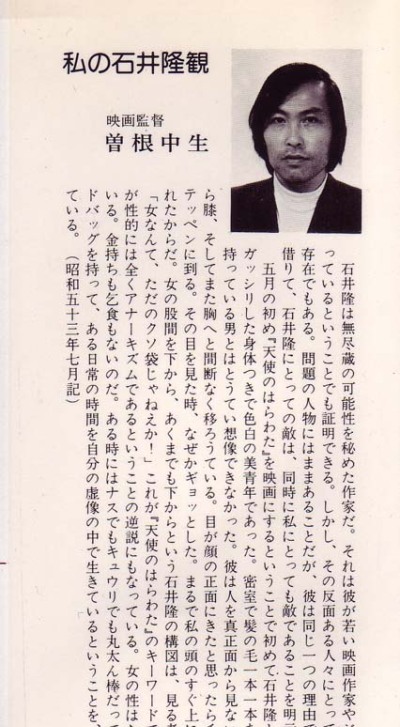 私の石井隆観
映画監督
曽根中生
石井隆は無尽蔵の可能性を秘めた作家だ。それは彼が若い映画作家や
っているということでも証明できる。しかし、その反面ある人々にとって
存在でもある。問題の人物にはままあることだが、彼は同じ一つの理由で
借りて、石井隆にとっての敵は、同時に私にとっても敵であることを明
五月の初め『天使のはらわた』を映画にするということで初めて石井隆と
ガッシリした身体つきで色白の美青年であった。密室で髪の毛一本一本を
持っている男とはとうてい想像できなかった。彼は人を真正面から見な
ら膝、そしてまた胸へと間断なく移ろうている。目が顔の正面にきたと思ったら
テッペンに到る。その目を見た時、なぜかギョッとした。まるで私の頭のすぐ上に
れたからだ。女の股間を下から、あくまでも下からという石井隆の構図は、見る者
「女なんて、ただのクソ袋じゃねえか!」これが『天使のはらわた』のキーワードで
が性的には全くアナーキズムであるということの逆説にもなっている。女の性は
いる。金持ちも乞食もないのだ。ある時にはナスでもキュウリでも丸太ん棒だって
ドバッグを持って、ある日常の時間を自分の虚像の中で生きているということを、
ている。(昭和五十三年七月記)